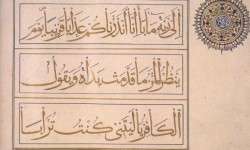 الى ربه مآبا انا انذرناكم عذابا قريبا يوم
ينظر المرء ما قدمت يداه ويقول
الكافر ياليتني كنت ترابا